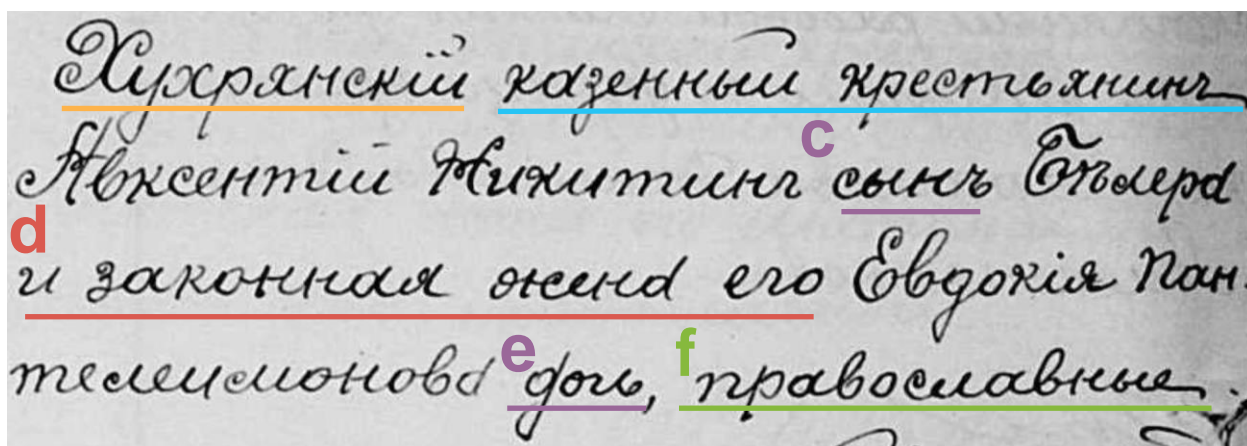 Хухрянскій казенный крестьянинъ
c
Авксентій Никитинъ сынъ Бѣлера
d
и законная жена его Евдокія Пан-
e f
телеимонова дочь, православные.